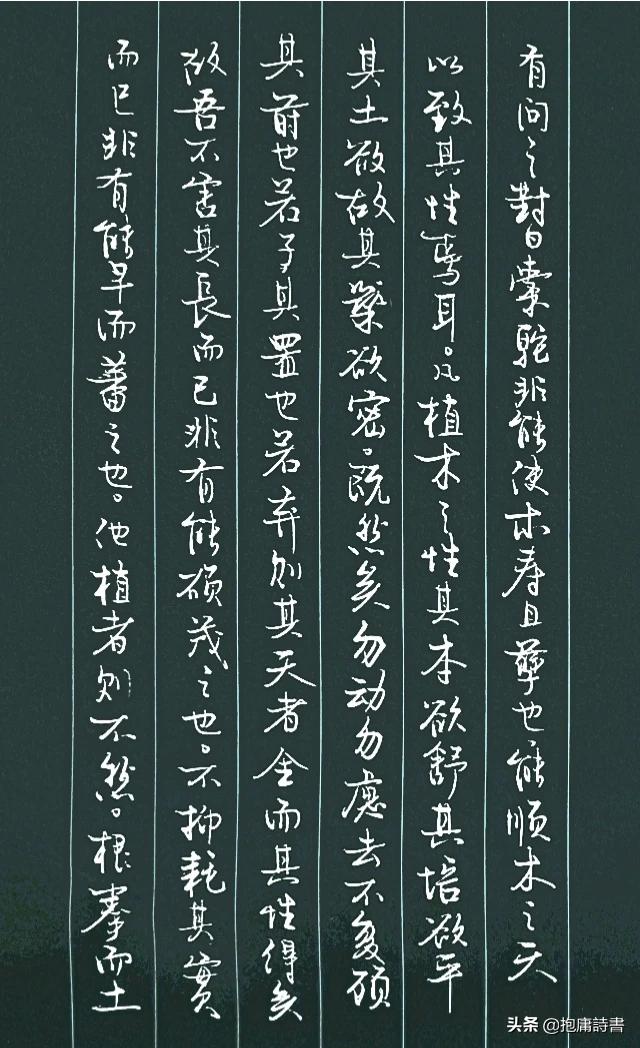 有问之對曰橐駝非能使木寿且孳也能順木之天
以致其性焉耳。凡植木之性其本欲舒其培欲平
其土欲故其築欲密。既然矣勿动勿慮去不复顾
其莳也若子其置也若弃则其天者全而其性得矣
故吾不害其長而已非有能硕茂之也。不抑耗其實
而已非有能早而蕃之也。他植者则不然。根拳而土
头条 @抱庸詩書